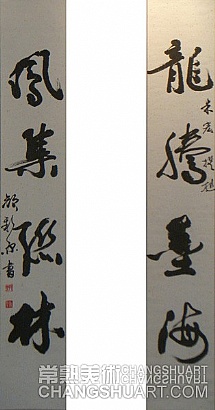 龍騰墨海
鳳集聯林
書
常熟美術
CHANGSHUART
CHANGSHUART.COM